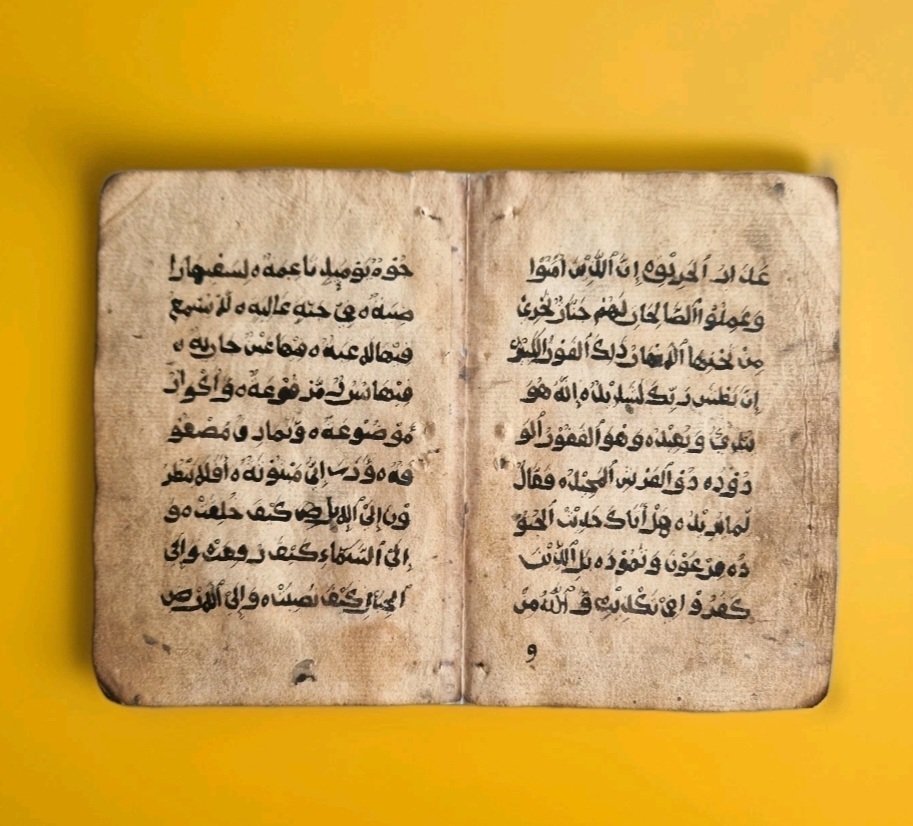 عذاب الحريق ه إن الذين آمنوا
وعملوا الصالحات لهم جنات تجري
من تحتها الانهار ذلك الفوز الكبير
إن بطش ربك لشديد ه إنه هو
يبدئ ويعيد ه وهو الغفور الو
دود ه ذو العرش المجيد ه فعال
لما يريد ه هل أتاك حديث الجنو
د ه فرعون وثمود ه بل الذين
كفروا في تكذيب و الله من
و
جوه يومئذ ناعمة ه لسعيها را
ضية ه في جنة عالية ه لا تسمع
فيها لاغية ه فيها عين جارية ه
فيها سرر مرفوعة ه وأكواب
موضوعة ه ونمارق مصفو
فة ه مبثوثة ه أفلا ينظر
ون إلى كيف خلقت ه و
إلى السماء كيف رفعت وإلى
الجبال كيف نصبت ه وإلى الارض